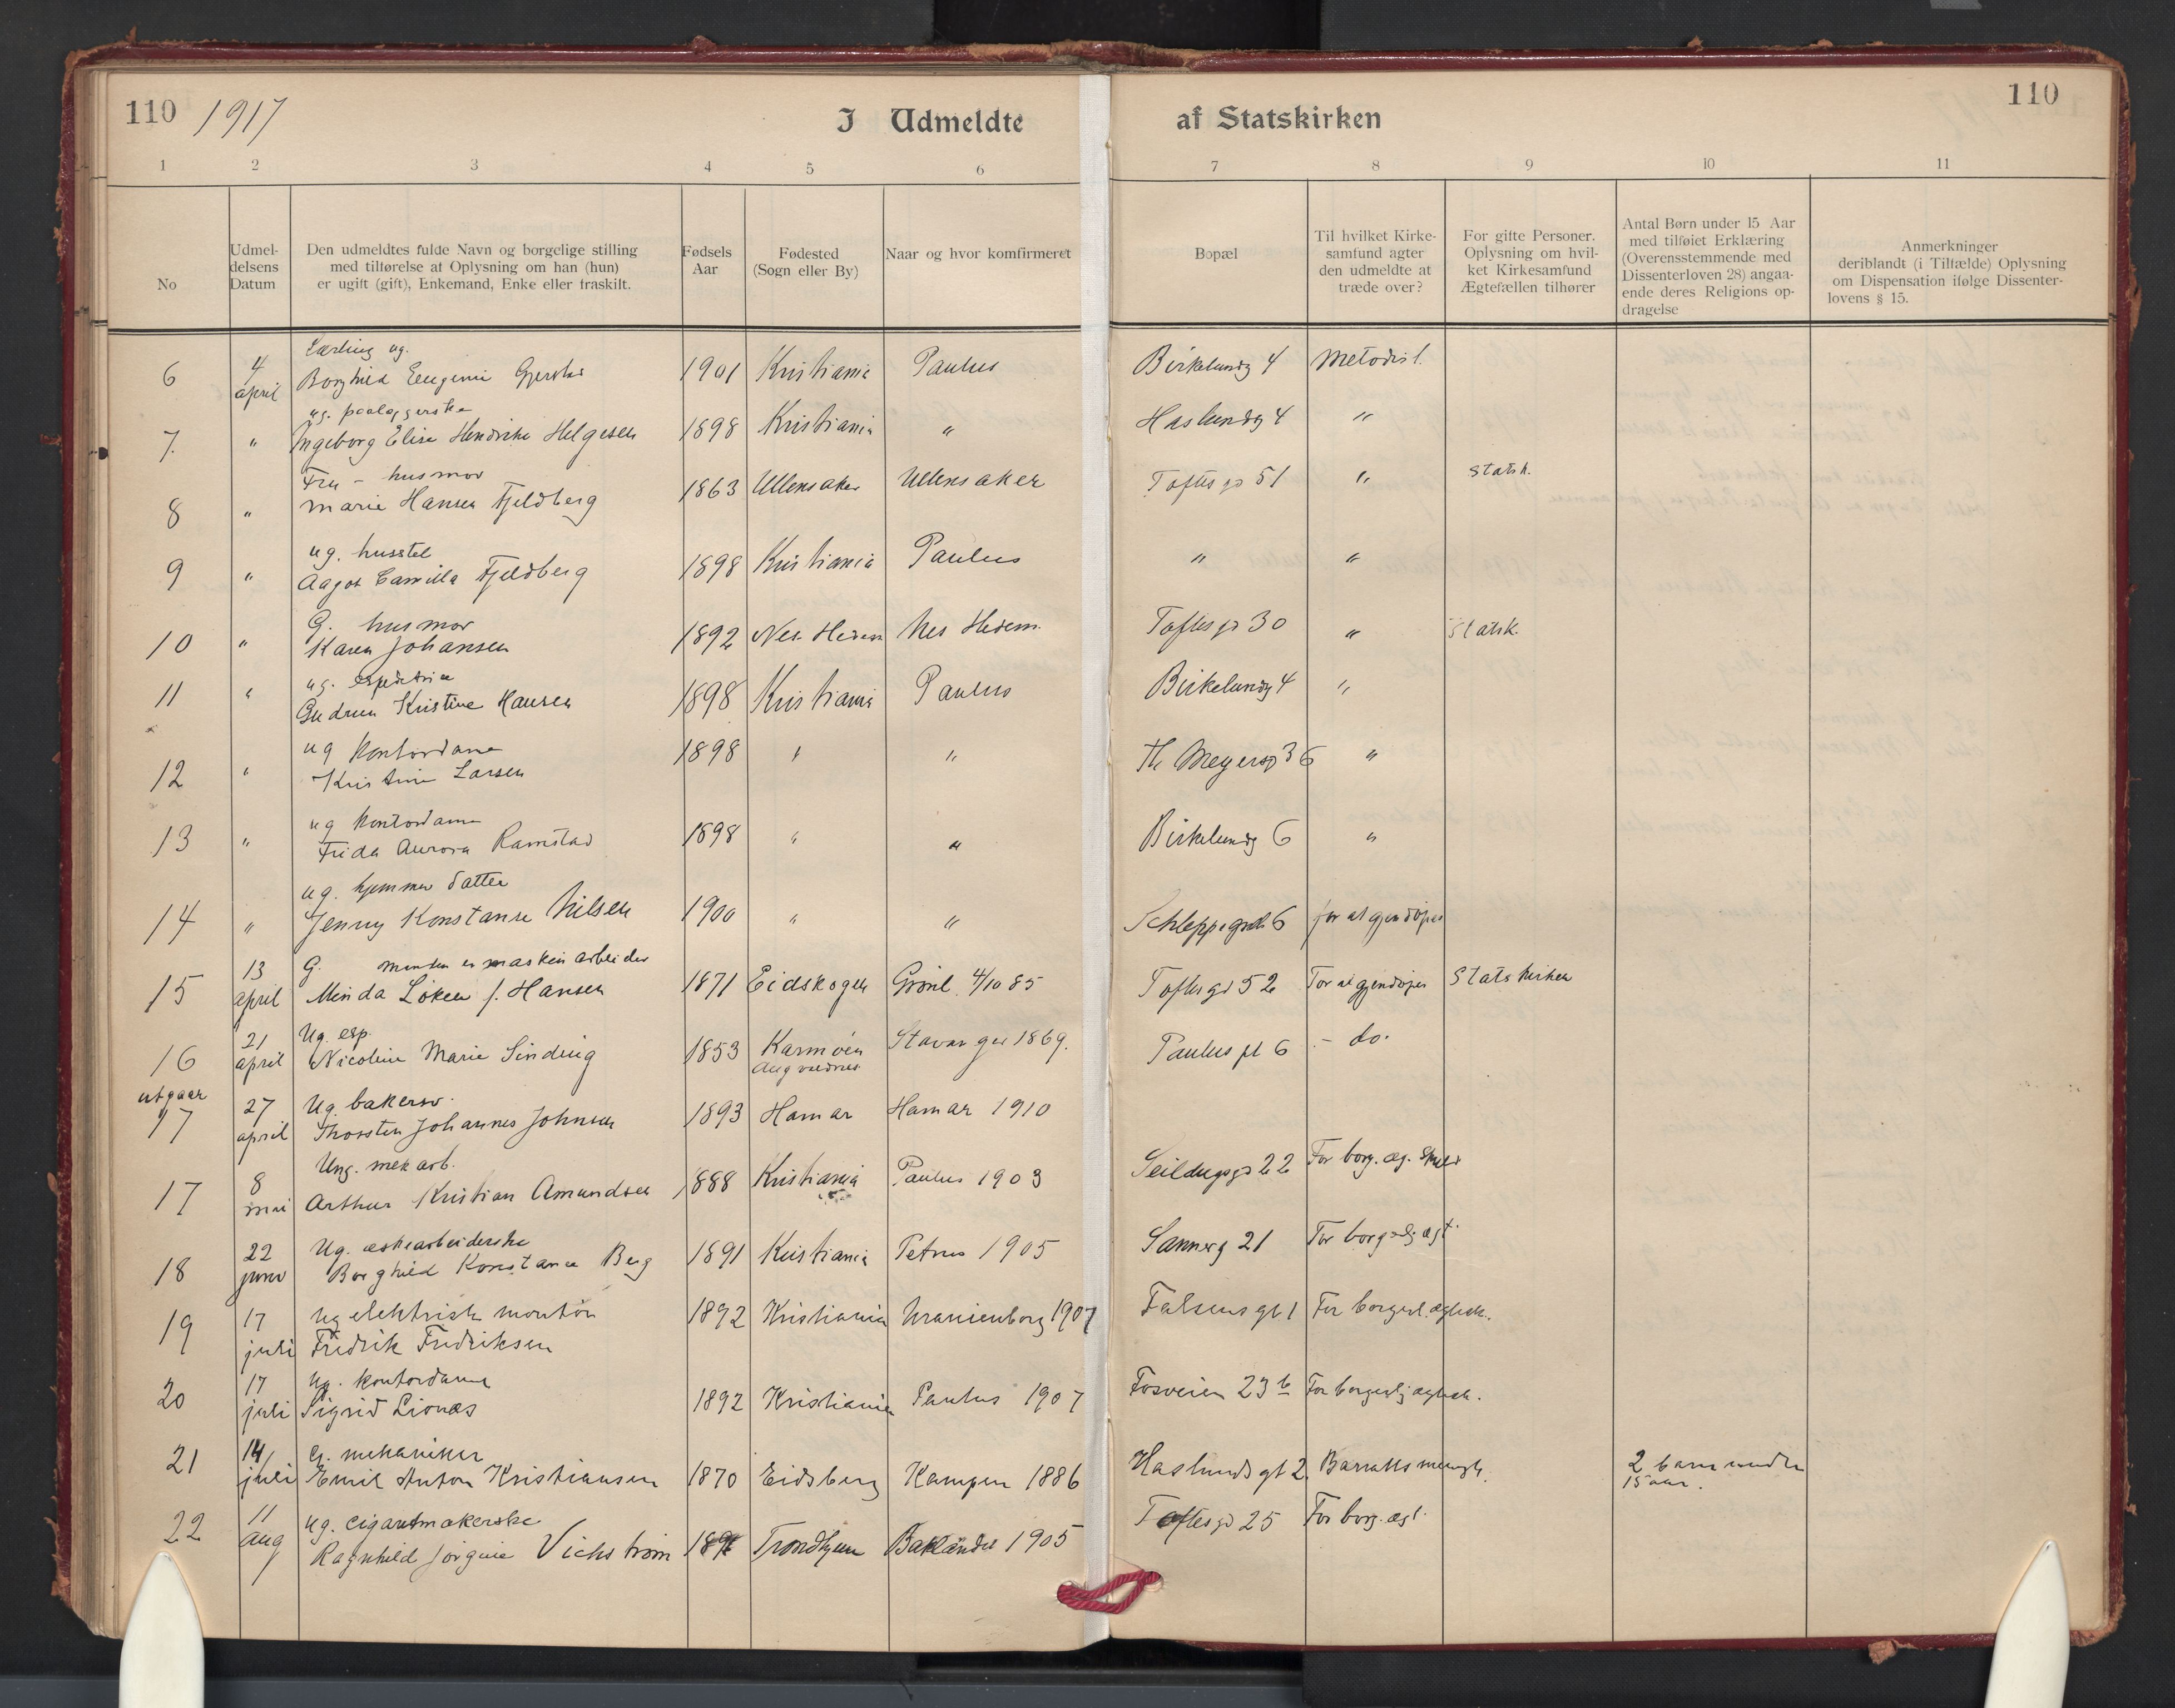 110 1917 I Udmeldte af Statskirken 110
1 2 3 4 5 6 7 8 9 10 11
No
Udmel-
delsens
Datum
Den udmeldtes fulde Navn og borgelige stilling
med tilførelse af Oplysning om han (hun)
er ugift (gift), Enkemand, Enke eller fraskilt.
Fødsels
Aar
Fødested
(Sogn eller By)
Naar og hvor komfirmeret
Bopæl
Til hvilket Kirke-
samfund agter
den udmeldte at
træde over?
For gifte Personer.
Oplysning om hvil-
ket Kirkesamfund
Ægtefællen tilhører
Antal Børn under 15 Aar
med tilføiet Erklæring
(Overensstemmende med
Dissenterloven 28) angaa-
ende deres Religions op-
dragelse
Anmerkninger
deriblandt (i Tilfælde) Oplysning
om Dispensation ifølge Dissenter-
lovens § 15.
Lærling ug.
6 4 april Borghild Eeugenie 1901 Kristiania Paulus Birkelundg 4 Metodist.
ug. paalæggerske
7. " Ingeborg Elise Hendrike Helgesen 1898 Kristiania " Haslundg 4 "
Fru - husmor
8 " Marie Hansen Fjeldberg 1863 Ullensaker Ullensaker Toftes gd 51 " Statsk.
ug. husstel
9 " Aagot Camilla Fjeldberg 1898 Kristiania Paulus " "
G. husmor
10 " Karen Johansen 1892 Nes Hedem Nes Hedem. Toftes gd 30 " Statsk.
ug. espeditrice
11 " Gudrun Kristine Hansen 1898 Kristiania Paulus Birkelundg 4 "
ug kontordame
12 " Kristine Larsen 1898 " " Th Meyersg 36 "
ug kontordame
13 " Frida Aurora Ramstad 1898 " " Birkelundg 6 "
ug. hjemmev datter
14 " Jenny Konstanse Nilsen 1900 " " Schleppegrels 6 for at gjendøpes
G. manden er maskinarbeider
15 13 april Minda Løken f. Hansen 1871 Eidskogen Grønl. 4/10 85 Toftes gd 52 For at gjendøpes Statskirken
Ug. esp.
16 21 april Nicoline Marie Sinding 1853 Karmøen Stavanger 1869. Paulus pl 6 - do.
utgaar
Ug. bakersv.
17 27 april Thorsten Johannes Johnsen 1893 Hamar Hamar 1910
Ung. mek arb.
17 8 mai Arthur Kristian Amundsen 1888 Kristiania Paulus 1903 Seildugsgd 22 For borg. æg.
Ug. æskearbeiderske
18 22 juni Borghild Konstanse Berg 1891 Kristiania Petrus 1905 Sannerg 21 For borgelig ægt.
ug elektrisk montør
19 17 juli Fredrik Fredriksen 1892 Kristiania Uranienborg 1907 Falsens gt 1 For borgerl. ægtesk.
ug. kontordame
20 17 juli Sigrid Lionæs 1892 Kristiania Paulus 1907 Fosveien 23 b For borgerlig ægtesk.
G. mekaniker
21 14 juli Emil Anton Kristiansen 1870 Eidsberg Kampen 1886 Haslunds gt 2. Barratts menigh. 2 barn under
15 aar.
ug. cigaretmakerske
22 11 aug Ragnhild Jørgine Vickstrøm Trondhjem Baklandet 1905 Toftes gd 25 For borg. ægt.